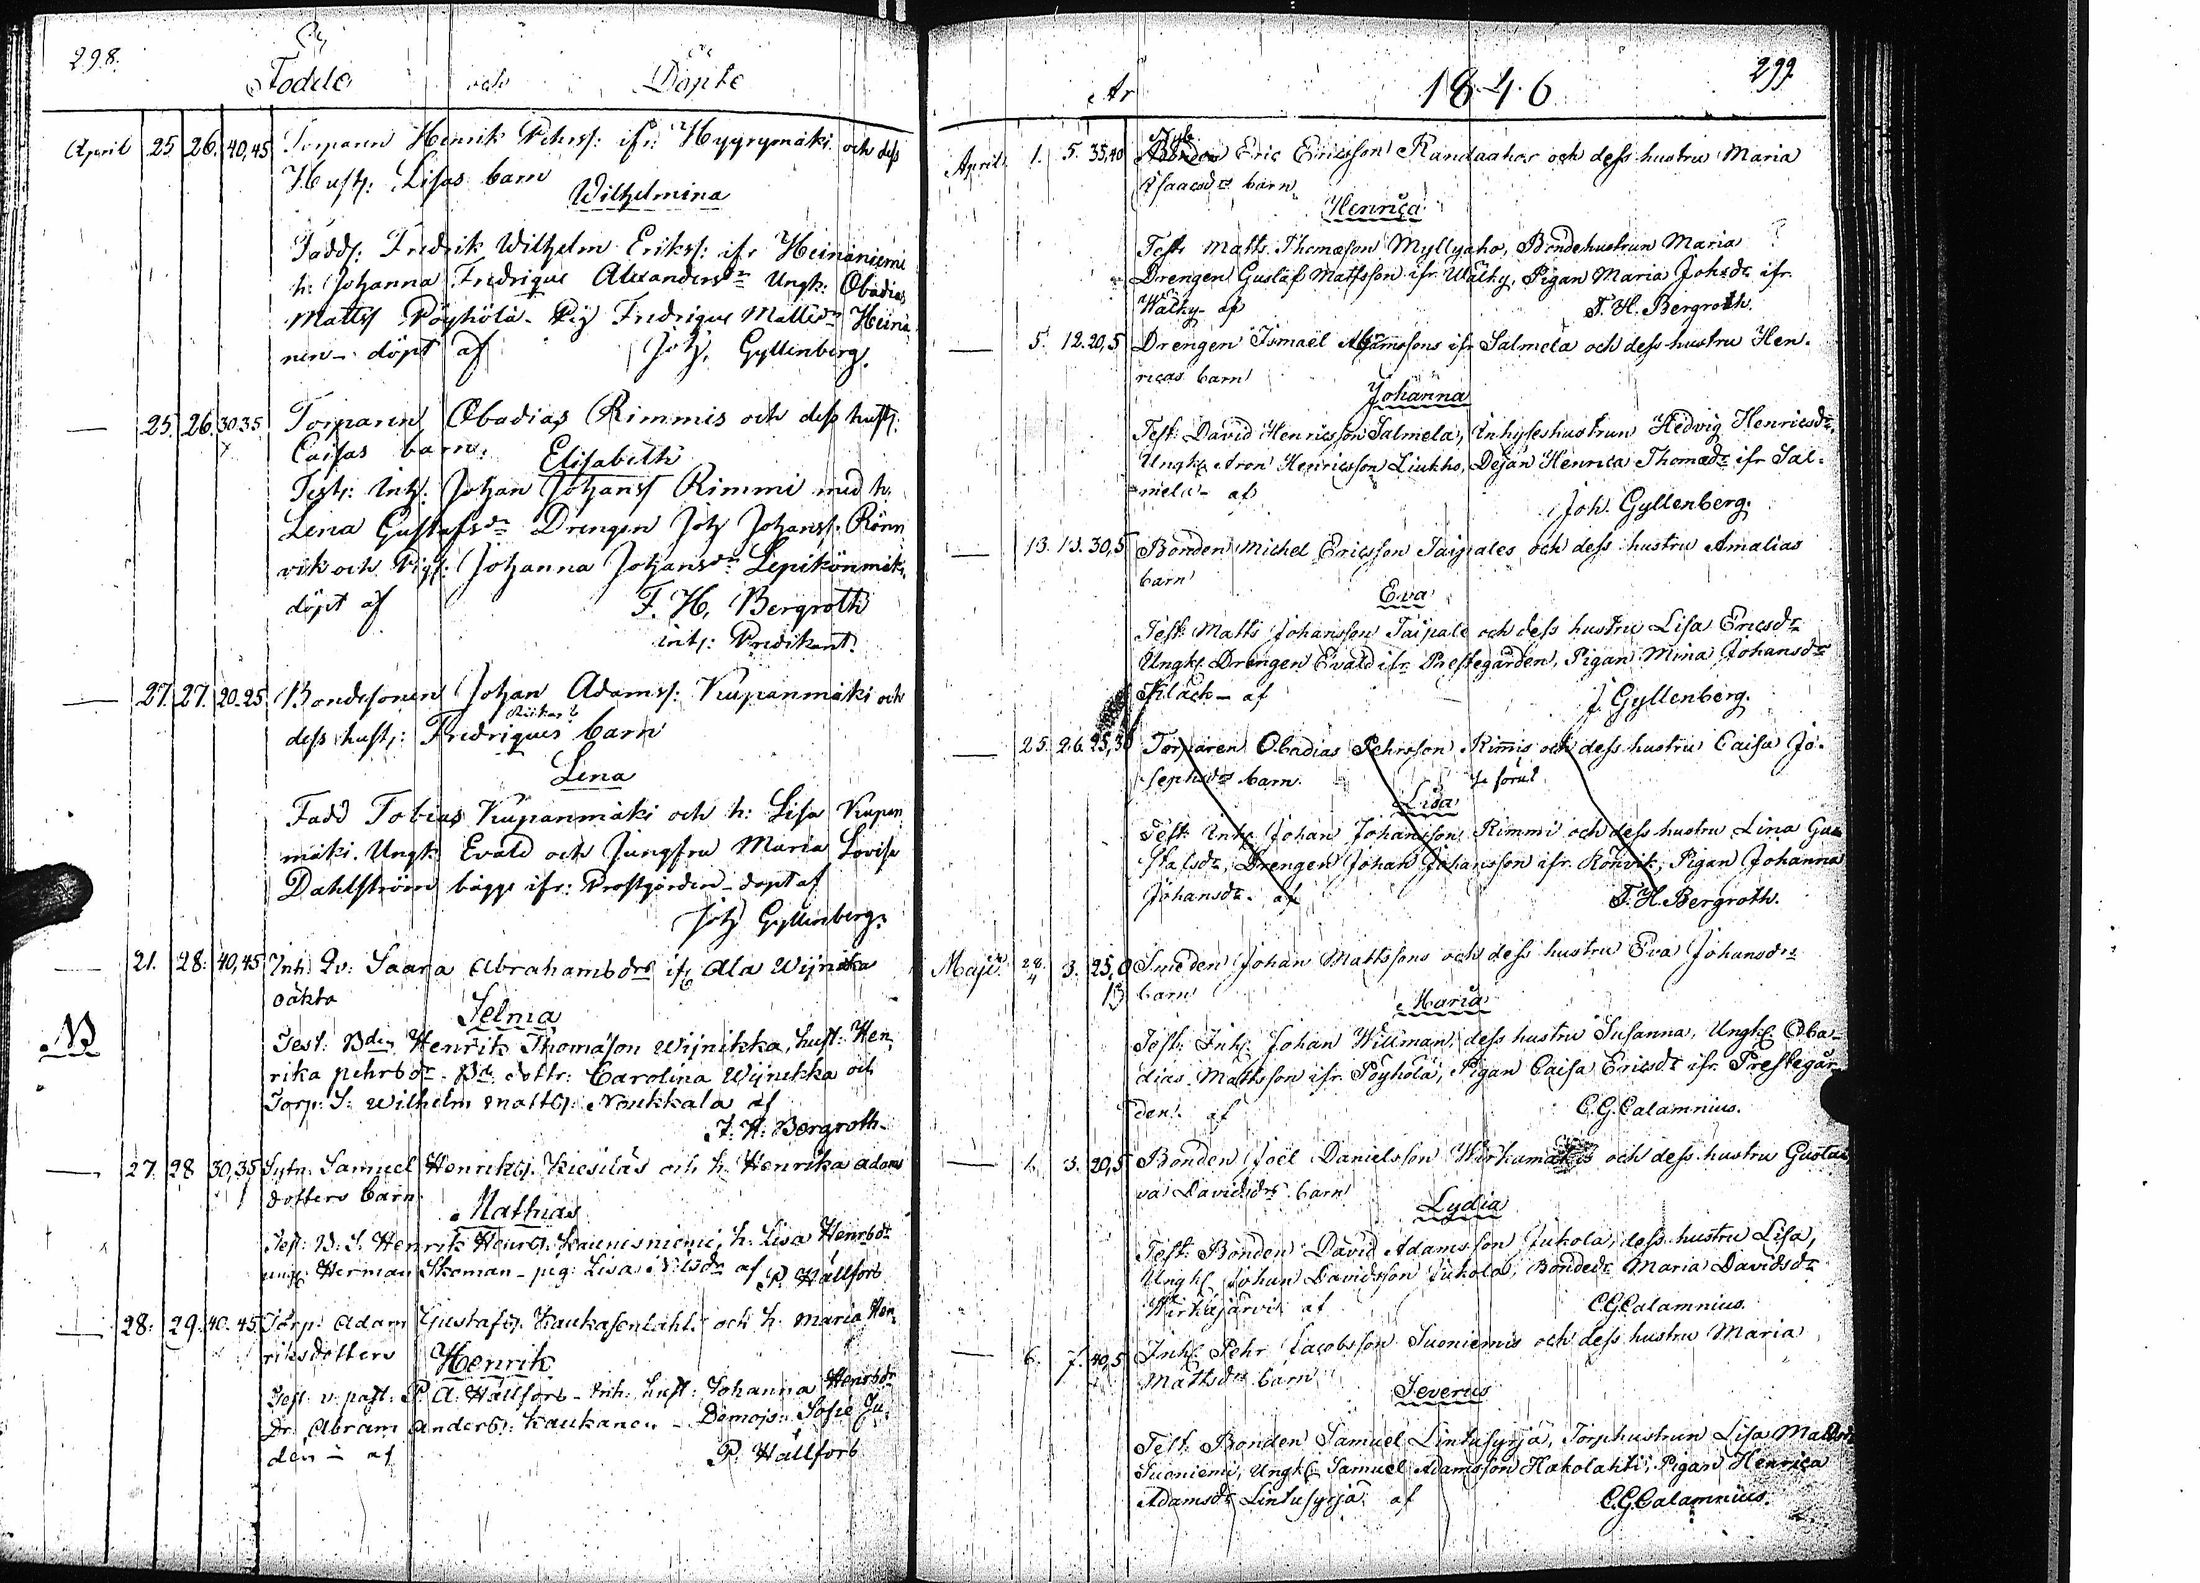 298.
Födde och Döpte
April 25 26. 40,45 Torparn Henrik Pehrss: ifr: Hyyrymäki och dess
Hust: Lisas barn
Wilhelmina
Fadd: Fredrik Wilhelm Erikss: ifr Heinäniemi
h: Johanna Fredrique Alexandersdr Ungk: Obadias
Matts Pöyhölä - Pig Fredrique Mattsdr Heinä
nen - döpt af Joh, Gyllenberg.
— 25. 26. 30.35. Torparen Obadias Rimmis och dess hust:
Caisas barn. Elisabeth
Test: Inh. Johan Johanss Rimmi med h.
Lena Gustafsdr Drengen Joh Johanss: Rönn
vik och Pig: Johanna Johansdr Lepikönmäki
döpt af F. H. Bergroth
int: Predikant.
— 27. 27. 20.25 Bondesonen Johan Adamss: Kupanmäki och
dess hust: Fredriques barn
Lena
Fadd Tobias Kupanmäki och h: Lisa Kupan
mäki. Ungk: Evald och Jungfru Maria Lovisa
Dahlström bägge ifr: Prostgården - döpt af
Joh Gyllenberg.
— 21. 28. 40,45 Inh: Qv: Saara Abrahamsdrs ifr Ala Wijnikka
oäkta
NB Selma
Test: Bden Henrik Thomasson Wijnikka, hust: Hen
rika pehrsdr. Bd. dottr: Carolina Wijnikka och
Torp: S: Wilhelm Matts: Noukkala af
F. H: Bergroth
— 27. 28 30,35 Sytn: Samuel Henriks. Kiesiläs och h. Henrika adams
dotters barn.
Mathias
Test: B: S. Henrik Henrs. Kaunisniemi, h. Lisa Henrsdr
ungk: Herman Skoman - pig: Lisa Nilsdr af P. Hällfors
— 28. 29. 40.45 Torp: Adam Gustafs. Kaukasenlahti och h. Maria Hen
riksdotters Henrik
Test: v. past: P. A. Hällfors - Inh: hust: Johanna Henrsdr
Dr. Abram Anders: Kaukanen - Demojs: Sofie Ju.
den - af P. Hällfors
År 1846 299.
April. 1. 5. 35,40 Eric Ericsson Randaahos och dess hustru Maria
Isaacsdrs barn.
Henrica
Test: Matts Thomasson Myllyaho, Bondehustrun Maria
Drengen Gustaf Mattsson ifr. Walky, Pigan Maria Johsdr ifr.
Walky - af F. H. Bergroth.
— 5. 12. 20,5 Drengen Ismaël Adamssons ifr Salmela och dess hustru Hen.
ricas barn
Johanna
Test: David Henricsson Salmela, Inhyseshustrun Hedvig Henricsdr,
Ungk. Aron Henricsson Liukko, Dejan Henrica Thomsdr ifr Sal.
mela - af Joh. Gyllenberg.
— 13. 13. 30,5 Bonden Michel Ericsson Taipales och dess hustru Amalias
barn
Eva
Test: Matts Johansson Taipale och dess hustru Lisa Ericsdr
Ungk. Drengen Evald ifr. Prestegården, Pigan Mina Johansdr
Kläck - af J. Gyllenberg.
— 25. 26. 25,30 Torparen Obadias Pehrsson Rimis och dess hustru Caisa Jo.
sephsdrs barn. se förut
Lisa
Test: Inh. Johan Johansson Rimmi och dess hustru Lina Gu
stafsdr, Drengen Johan Johansson ifr. Rönvik, Pigan Johanna
Johansdr. af F. H. Bergroth.
Maji 28/4 3. 25,0 Smeden Johan Mattssons och dess hustru Eva Johansdrs
13 barn
Maria
Test: Inh. Johan Willman, dess hustru Susanna, Ungk. Oba-
dias Mattsson ifr. Pöyhölä, Pigan Caisa Ericsdr ifr. Prestegår
den. af C. G. Calamnius.
— 1. 3. 20,5 Bonden Joël Danielsson Wirkumäkis och dess hustru Gusta
va Davidsdrs barn
Lydia
Test: Bonden David Adamsson Jukola, dess hustru Lisa,
Ungk. Johan Davidsson Jukola, Bondedr Maria Davidsdr
Wirkajärvi af C. G. Calamnius.
— 6. 7. 40,5 Inh. Pehr Jacobsson Suoniemis och dess hustru Maria
Mattsdrs barn
Severus
Test: Bonden Samuel Lintusyrjä, Torphustrun Lisa Mattsdr
Suoniemi, Ungk. Samuel Adamsson Hakolahti, Pigan Henrica
Adamsdr Lintusyrjä. af C. G. Calamnius.